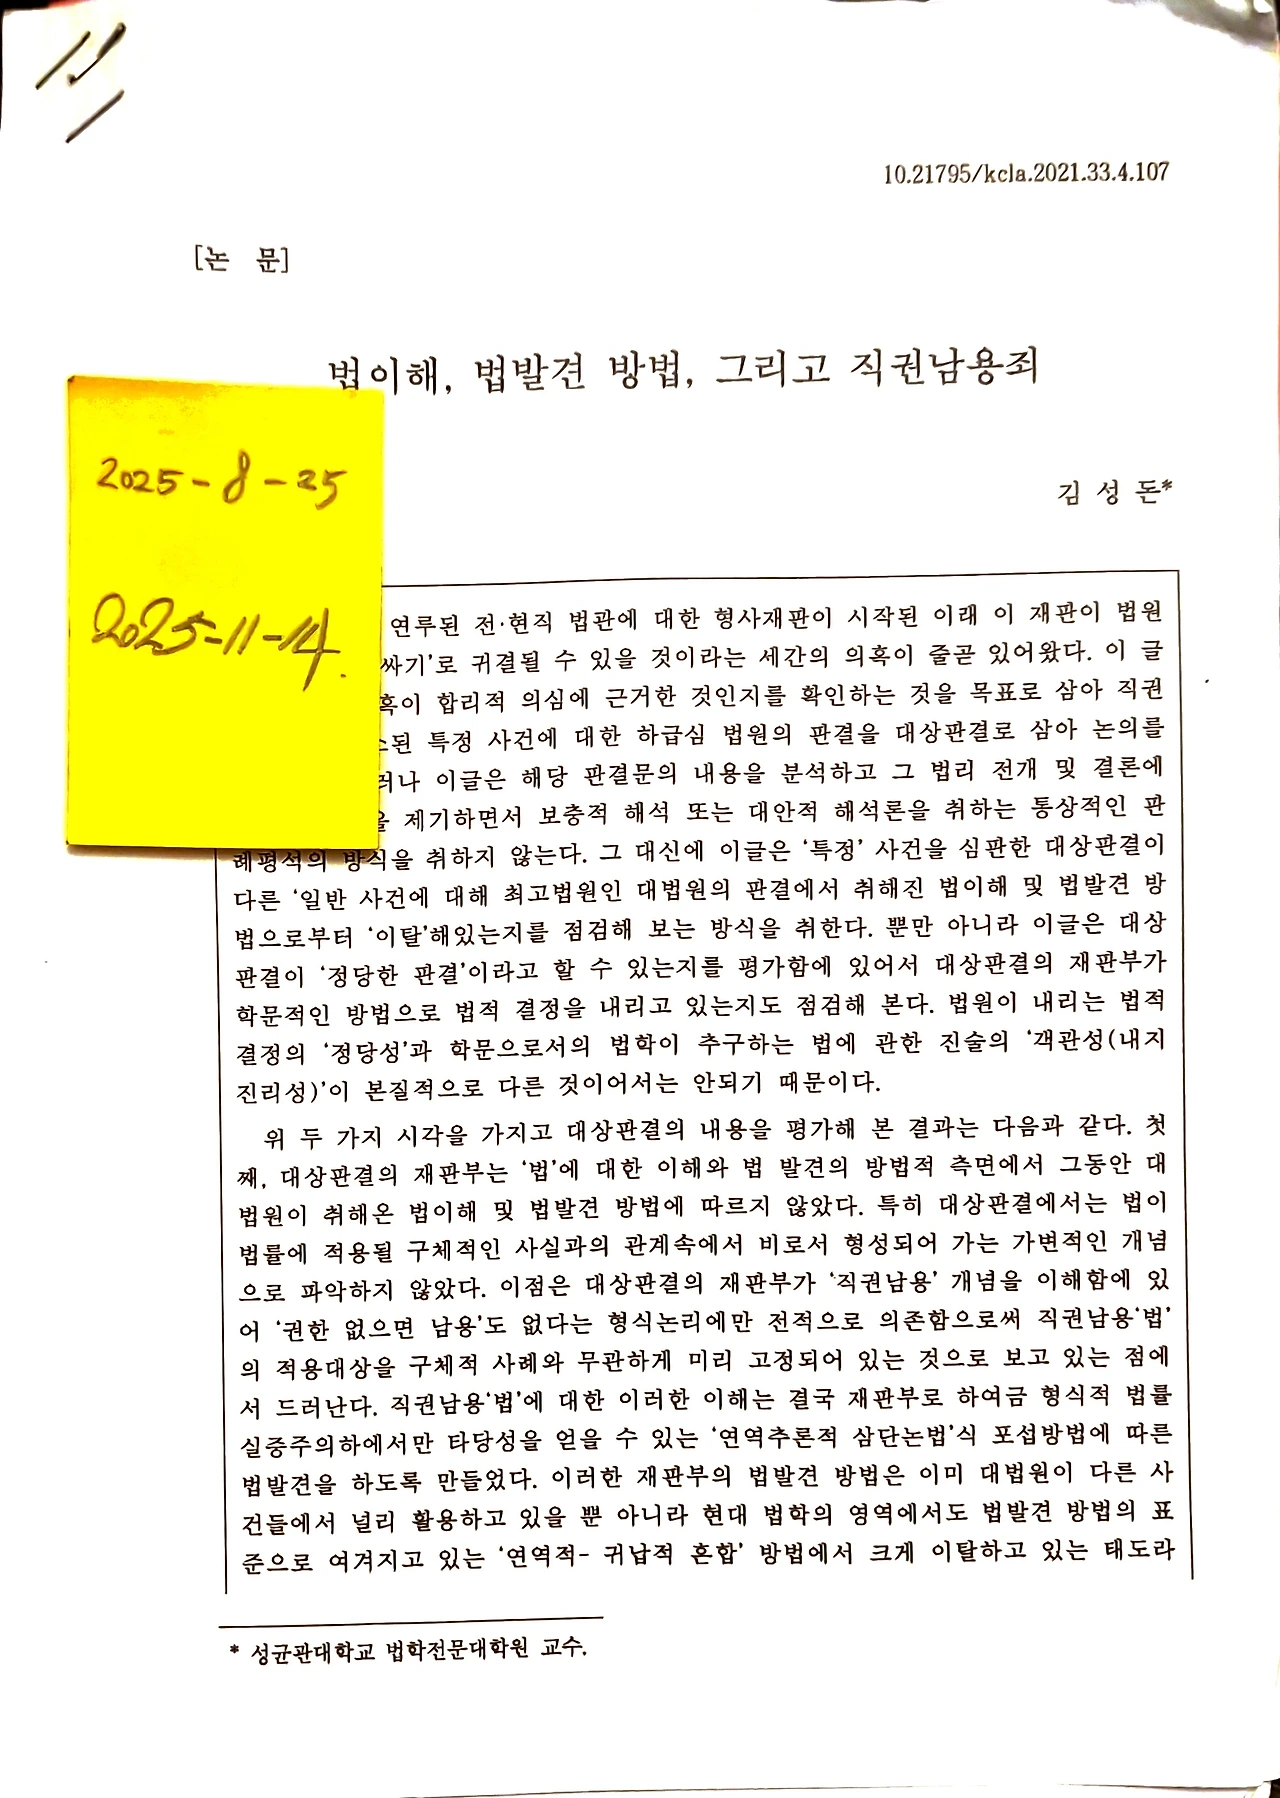 10.21795/kcla.2021.33.4.107
[논 문]
법이해, 법발견 방법, 그리고 직권남용죄
2025-8-25
2025-11-14.
김 성 돈*
연루된 전·현직 법관에 대한 형사재판이 시작된 이래 이 재판이 법원
싸기’로 귀결될 수 있을 것이라는 세간의 의혹이 줄곧 있어왔다. 이 글
혹이 합리적 의심에 근거한 것인지를 확인하는 것을 목표로 삼아 직권
된 특정 사건에 대한 하급심 법원의 판결을 대상판결로 삼아 논의를
러나 이글은 해당 판결문의 내용을 분석하고 그 법리 전개 및 결론에
을 제기하면서 보충적 해석 또는 대안적 해석론을 취하는 통상적인 판
례평석의 방식을 취하지 않는다. 그 대신에 이글은 ‘특정’ 사건을 심판한 대상판결이
다른 ‘일반 사건에 대해 최고법원인 대법원의 판결에서 취해진 법이해 및 법발견 방
법으로부터 ‘이탈’해있는지를 점검해 보는 방식을 취한다. 뿐만 아니라 이글은 대상
판결이 ‘정당한 판결’이라고 할 수 있는지를 평가함에 있어서 대상판결의 재판부가
학문적인 방법으로 법적 결정을 내리고 있는지도 점검해 본다. 법원이 내리는 법적
결정의 ‘정당성’과 학문으로서의 법학이 추구하는 법에 관한 진술의 ‘객관성(내지
진리성)’이 본질적으로 다른 것이어서는 안되기 때문이다.
위 두 가지 시각을 가지고 대상판결의 내용을 평가해 본 결과는 다음과 같다. 첫
째, 대상판결의 재판부는 ‘법’에 대한 이해와 법 발견의 방법적 측면에서 그동안 대
법원이 취해온 법이해 및 법발견 방법에 따르지 않았다. 특히 대상판결에서는 법이
법률에 적용될 구체적인 사실과의 관계속에서 비로서 형성되어 가는 가변적인 개념
으로 파악하지 않았다. 이점은 대상판결의 재판부가 ‘직권남용’ 개념을 이해함에 있
어 ‘권한 없으면 남용’도 없다는 형식논리에만 전적으로 의존함으로써 직권남용‘법’
의 적용대상을 구체적 사례와 무관하게 미리 고정되어 있는 것으로 보고 있는 점에
서 드러난다. 직권남용‘법’에 대한 이러한 이해는 결국 재판부로 하여금 형식적 법률
실증주의하에서만 타당성을 얻을 수 있는 ‘연역추론적 삼단논법’식 포섭방법에 따른
법발견을 하도록 만들었다. 이러한 재판부의 법발견 방법은 이미 대법원이 다른 사
건들에서 널리 활용하고 있을 뿐 아니라 현대 법학의 영역에서도 법발견 방법의 표
준으로 여겨지고 있는 ‘연역적- 귀납적 혼합’ 방법에서 크게 이탈하고 있는 태도라
* 성균관대학교 법학전문대학원 교수.